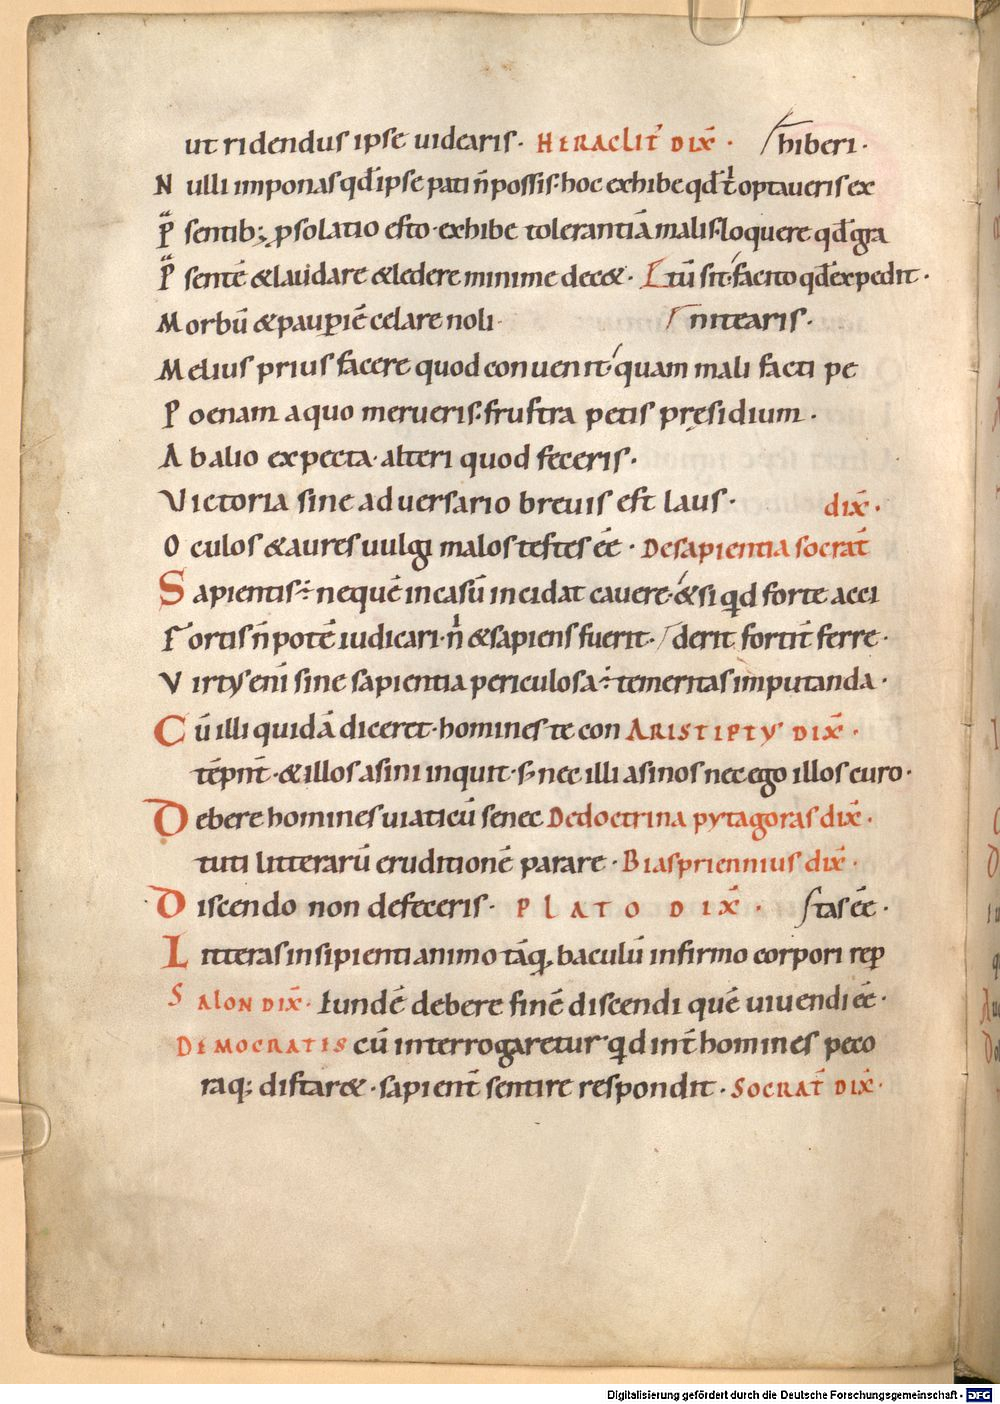 ut ridendus ipse uidearis. HERACLIT᾽ DIX̄. hiberi.
Nulli imponas qđ ipse pati n̄ possis. hoc exhibe qđ t᷑ optaueris ex
P̄sentib; p̱solatio esto. exhibe tolerantiā malis. loquere qđ gra
P̄sentē & laudare & ledere minime dec&. Etū sit. facito qđ expedit.
Morbū & paup̱iē celare noli. nitearis.
Melius prius facere quod conuenit. quam mali facti pe
Poenam a quo merueris. frustra petis pręsidium.
Ab alio expecta. alteri quod feceris.
Victoria sine aduersario breuis est laus. dix̄.
Oculos & aures uulgi malos testes eē. De sapientia socrat̄
Sapientis. ne quē in casū incidat cauere. & si qid forte acci
Fortis n̄ potē iudicari. n̄ & sapiens fuerit. derit fortit̄ ferre.
Virtys enī sine sapientia periculosa. temeritas imputanda.
Cū illi quidā diceret. homines te con ARISTIPTY᾽ DIX̄.
tēpn̄t. & illos asini inquit. s; nec illi asinos nec ego illos curo.
Debere homines uiaticū senec De doctrina pytagoras dix̄.
tuti litterarū eruditionē parare. Bias priennius dix̄.
Discendo non defeceris. PLATO DIX̄. stas eē.
Litteras insipienti animo tāq, baculū infirmo corpori rep̱
SALON DIX̄. Eundē debere finē discendi quē uiuendi eē.
DEMOCRATIS cū interrogaretur. qid int̄ homines peco
raq; distar&. sapient̄ sentire respondit. SOCRAT̄ DIX̄.
Digitalisierung gefördert durch die Deutsche Forschungsgemeinschaft - DFG